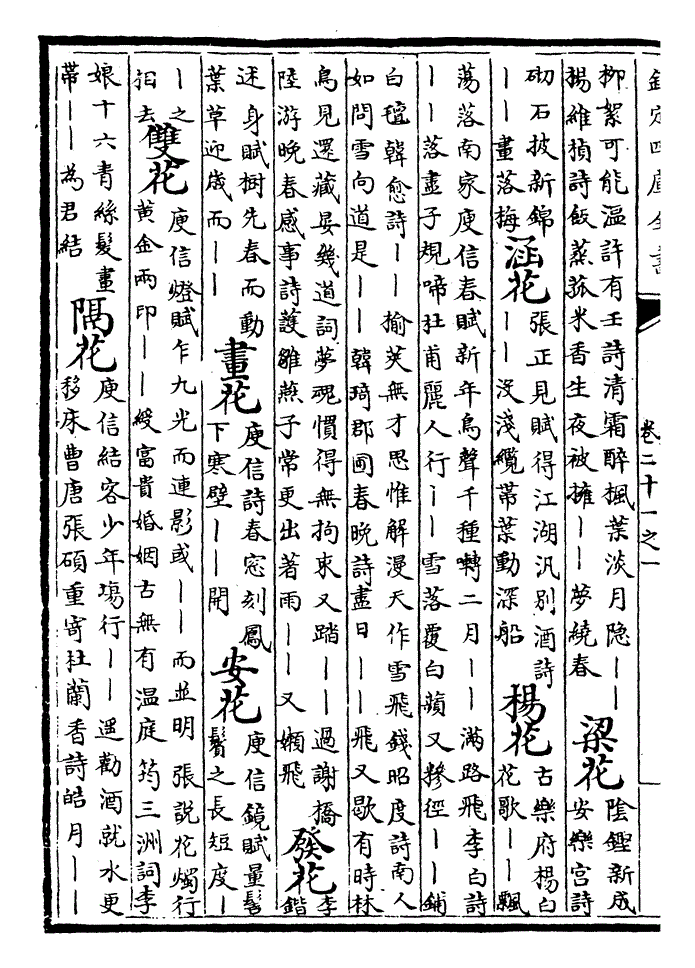 欽定四庫全書
卷二十一之一
柳絮可能溫許有壬詩清霜醉楓葉淡月隐——
楊維楨詩飯蒸菰米香生夜被擁——夢繞春
梁花
陰鏗新成
安樂宮詩
砌石披新錦
——畫落梅
涵花
張正見賦得江湖汎別酒詩
——没淺纜蒂葉動深船
楊花
古樂府楊白
花歌——飄
蕩落南家庾信春賦新年鳥聲千種囀二月——滿路飛李白詩
——落盡子規啼杜甫麗人行——雪落覆白蘋又糝徑——鋪
白氊韓愈詩——榆莢無才思惟解漫天作雪飛錢昭度詩南人
如問雪向道是——韓琦郡圃春晚詩盡日——飛又歇有時林
鳥見還藏晏幾道詞夢魂慣得無拘束又踏——過謝橋
陸游晚春感事詩護雛燕子常更出著雨——又嬾飛
發花
李
鍇
迷身賦樹先春而動
葉草迎歲而——
畫花
庾信詩春窓刻鳳
下寒壁——開
安花
庾信鏡賦量髻
鬢之長短度—
—之
泪去
雙花
庾信燈賦乍九光而連影或——而並明 張說花燭行
黃金兩印——綬富貴婚姻古無有温庭筠三洲詞李
娘十六青絲髮畫
帶——為君結
隔花
庾信結客少年場行——遥勸酒就水更
移床曹唐張碩重寄杜蘭香詩皓月——